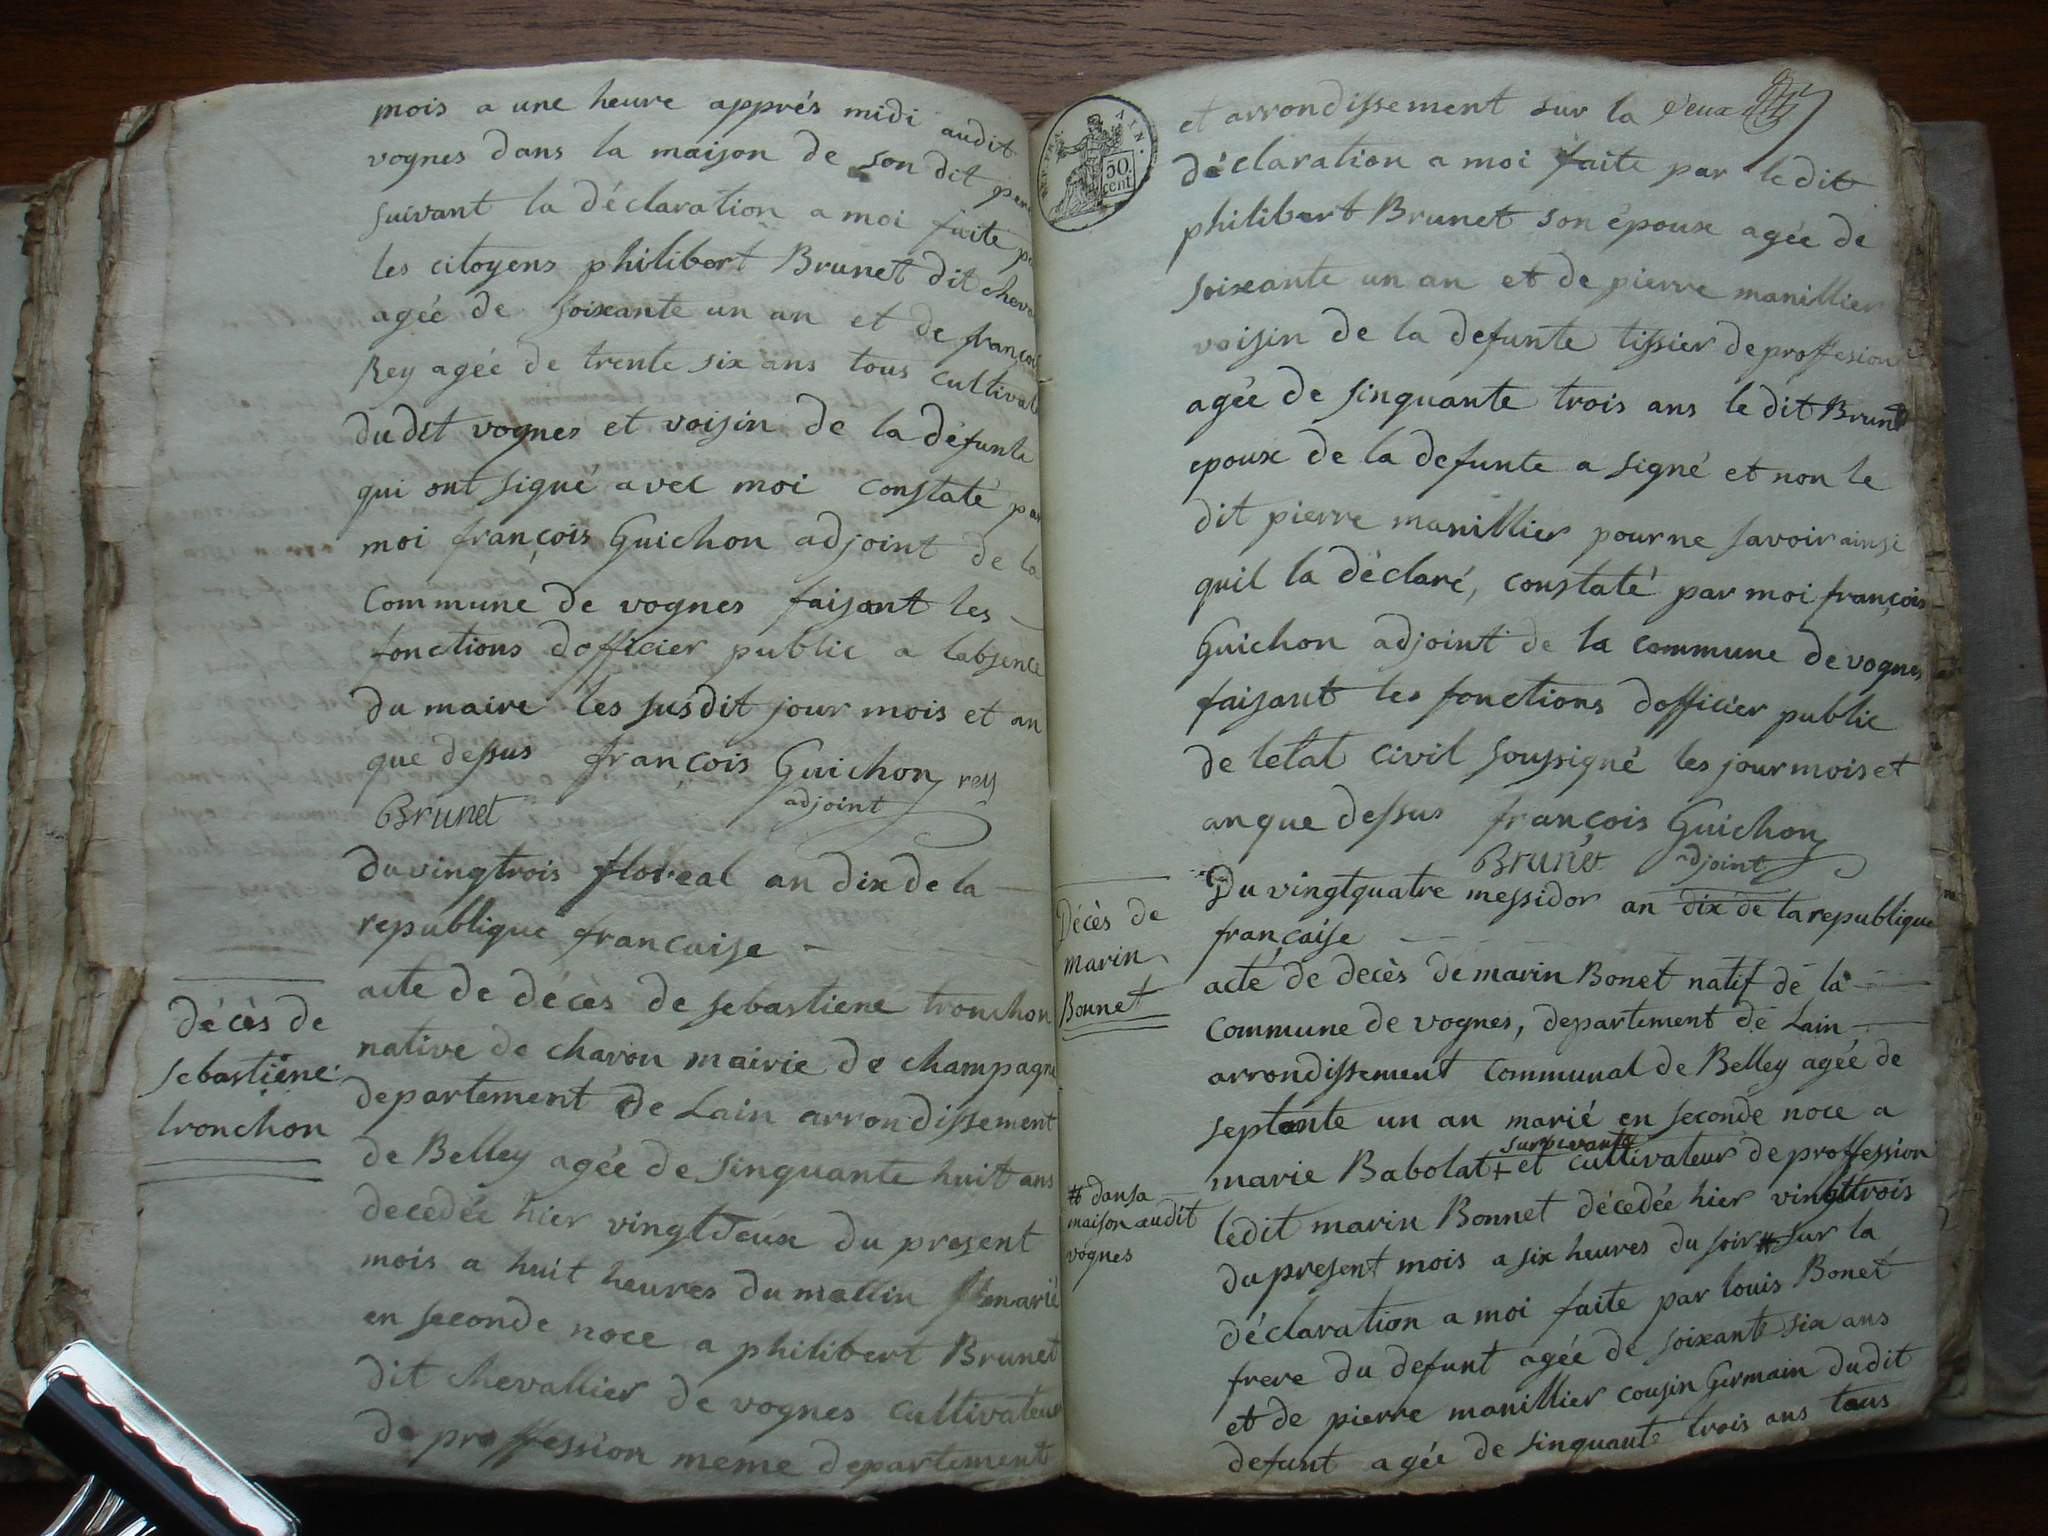 mois a une heure apprés midi audit
vognes dans la maison de son dit pere
suivant la déclaration a moi faite
les citoyens philibert Brunet dit
agée de soixante un an et de
Rey agée de trente six ans tous
dudit vognes et voisin de la défunte
qui ont signé avec moi constaté par
moi françois Guichon adjoint de la
commune de vognes faisant les
fonctions dofficier public a labsence
du maire les susdit jour mois et an
que dessus françois Guichon rey
Brunet adjoint
du vingtrois floreal an dix de la
republique francaise
Décès de
sebastiene
tronchon
acte de décès de sebastiene tronchon
native de chavon mairie de champagne
departement de Lain arrondissement
de Belley agée de sinquante huit ans
decedée hier vingtdeux du present
mois a huit heures du mattin marié
en seconde noce a philibert Brunet
dit chevallier de vognes cultivateur
de proffession meme departement
REP. FRA. AIN.
50
cent
et arrondissement sur la deux
déclaration a moi faite par le dit
philibert Brunet son époux agée de
soixante un an et de pierre manillier
voisin de la defunte tissier de proffesion
agée de sinquante trois ans le dit Brunet
epoux de la defunte a signé et non le
dit pierre manillier pour ne savoir ainsi
quil la déclaré, constaté par moi françois
Guichon adjoint de la commune de vognes
faisant les fonctions dofficier public
de letat civil soussigné les jour mois et
an que dessus françois Guichon
Brunet adjoint
Du vingtquatre messidor an dix de la republique
française
Décès de
marin
Bonnet
acte de decès de marin Bonet natif de la
commune de vognes, departement de Lain
arrondissement communal de Belley agée de
septante un an marié en seconde noce a
survivante
marie Babolat + et cultivateur de proffession
ledit marin Bonnet décedée hier vingttrois
du present mois a six heures du soir # sur la
# dans a
maison audit
vognes
déclaration a moi faite par louis Bonet
frere du defunt agée de soixante six ans
et de pierre manillier cousin Germain dudit
defunt agée de sinquante trois ans tous